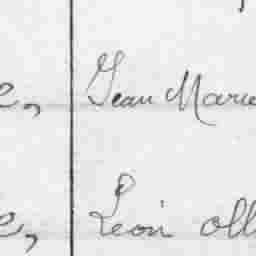 e, Jean Marie
e, Léon oll